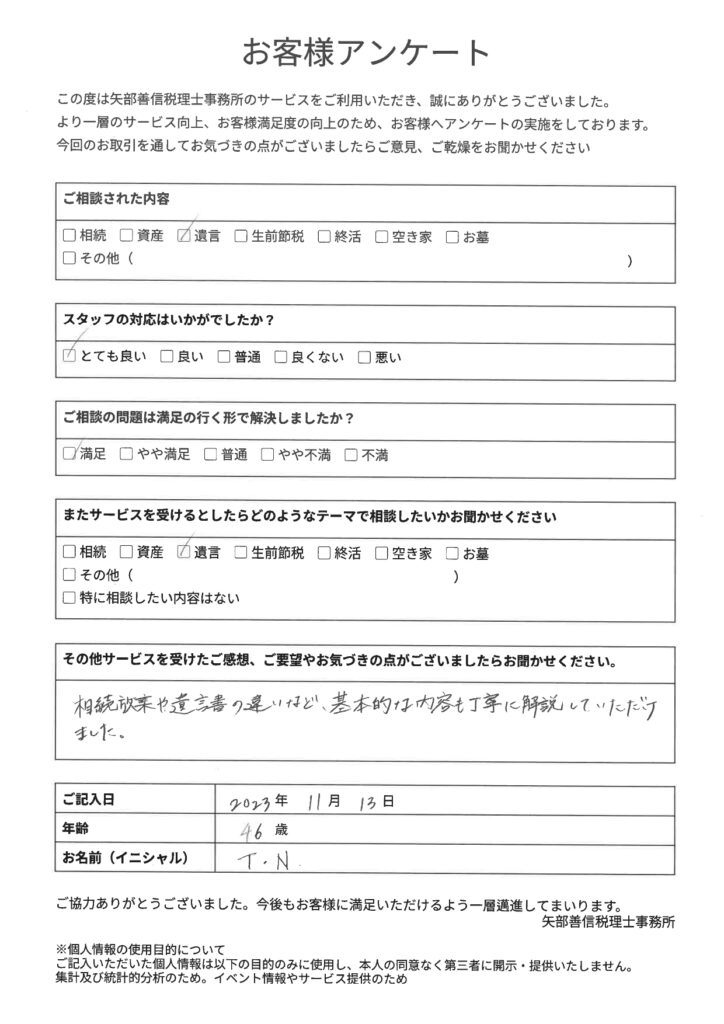 お客様アンケート
この度は矢部善信税理士事務所のサービスをご利用いただき、誠にありがとうございました。
より一層のサービス向上、お客様満足度の向上のため、お客様へアンケートの実施をしております。
今回のお取引を通してお気づきの点がございましたらご意見、ご乾燥をお聞かせください
ご相談された内容
☐相続 ☐資産 ☑遺言 ☐生前節税 ☐終活 ☐空き家 ☐お墓
☐その他（ ）
スタッフの対応はいかがでしたか？
☑とても良い ☐良い ☐普通 ☐良くない ☐悪い
ご相談の問題は満足の行く形で解決しましたか？
☑満足 ☐やや満足 ☐普通 ☐やや不満 ☐不満
またサービスを受けるとしたらどのようなテーマで相談したいかお聞かせください
☐相続 ☐資産 ☑遺言 ☐生前節税 ☐終活 ☐空き家 ☐お墓
☐その他（ ）
☐特に相談したい内容はない
その他サービスを受けたご感想、ご要望やお気づきの点がございましたらお聞かせください。
相続放棄や遺言書の違いなど、基本的な内容も丁寧に解説していただけ
ました。
ご記入日 2023年 11月 13日
年齢 46歳
お名前（イニシャル） T.N
ご協力ありがとうございました。今後もお客様に満足いただけるよう一層邁進してまいります。
矢部善信税理士事務所
※個人情報の使用目的について
ご記入いただいた個人情報は以下の目的のみに使用し、本人の同意なく第三者に開示・提供いたしません。
集計及び統計的分析のため。イベント情報やサービス提供のため